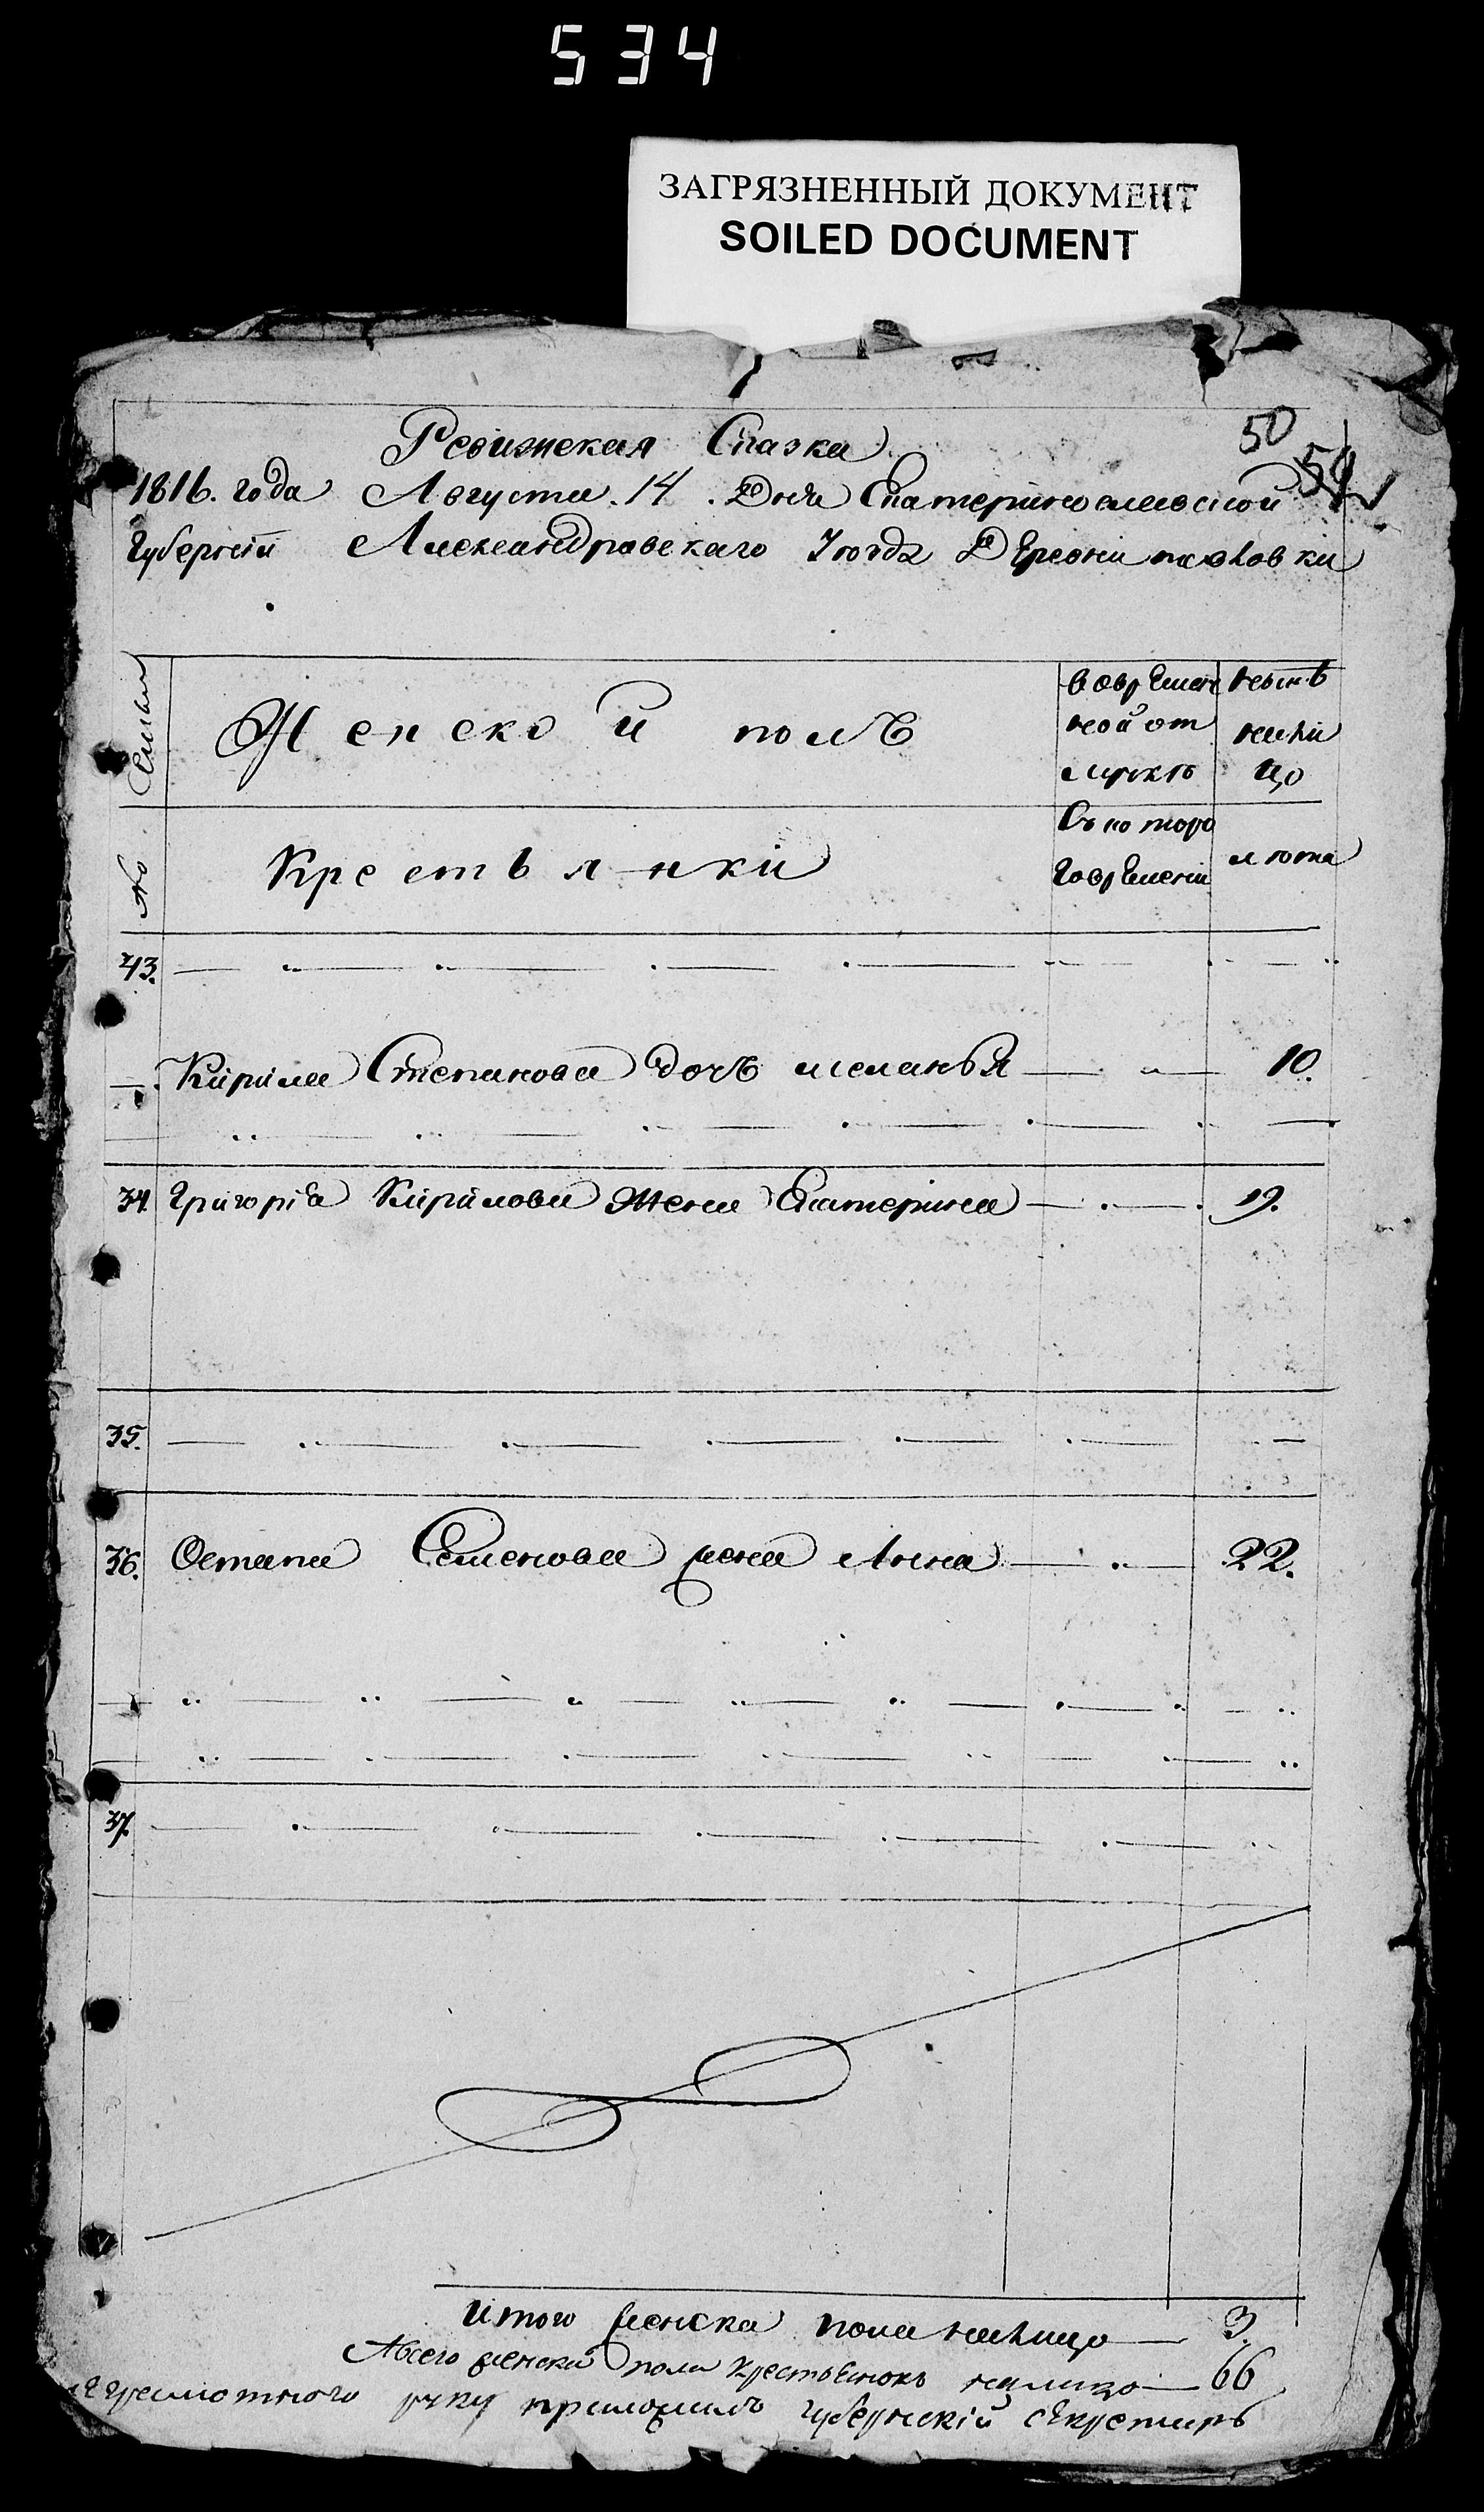 534
ЗАГРЯЗНЕННЫЙ ДОКУМЕНТ
SOILED DOCUMENT
50
Ревижская Сказка
1816. года Августа. 14. Дня Екатеринославской
Губернїи Александравскаго Уѣзда Деревни
Семьи
Женской полъ
вовремен ной от лучкѣ
нынѣ нали цо
№
Крестьянки
Съкоторо говремени
лѣта
43.
Кирила Степанова дочь меланья 10.
34. Григорiа Кирилова жена Екатерина 19.
35.
36. Остапа Семенова жена Анна 22.
37.
Итого женска пола налицо 3.
Авсего женска пола крестьянокъ налицо 66
руку приложилъ губернскiй секретарь